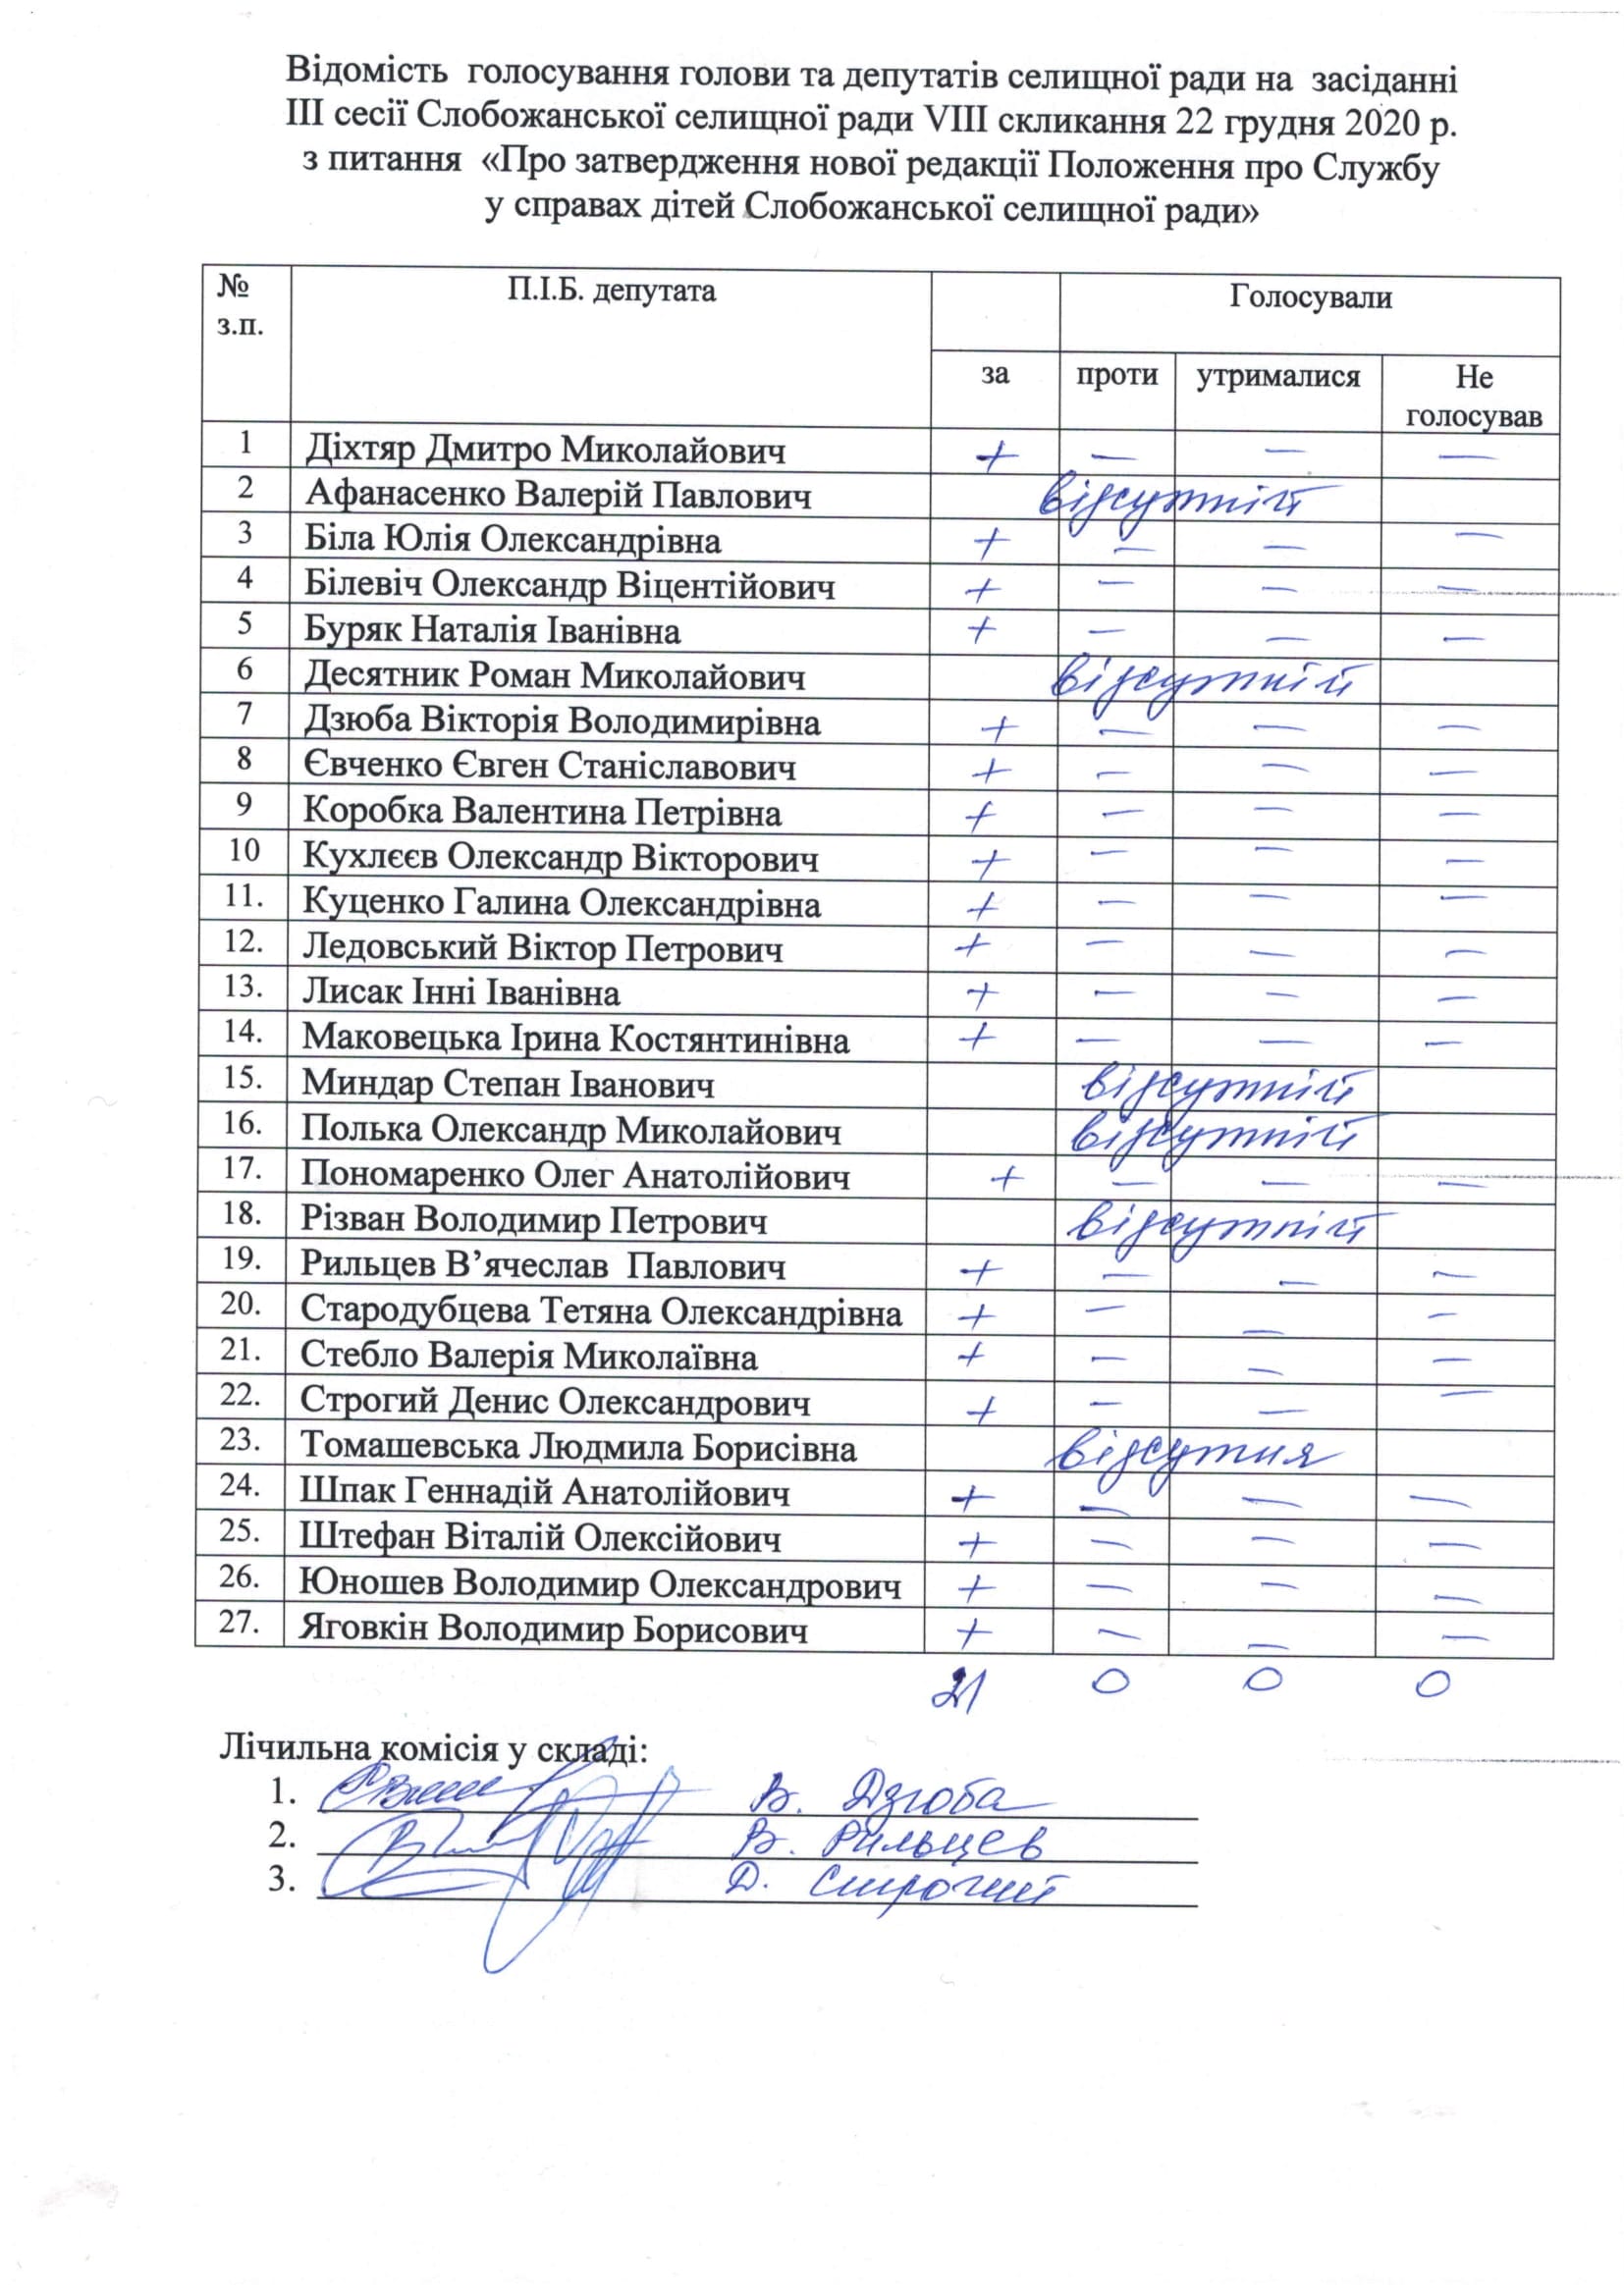 Відомість голосування голови та депутатів селищної ради на засіданні
III сесії Слобожанської селищної ради VIII скликання 22 грудня 2020 р.
з питання «Про затвердження нової редакції Положення про Службу
у справах дітей Слобожанської селищної ради»
№ з.п. П.І.Б. депутата Голосували
за проти утрималися Не голосував
1 Діхтяр Дмитро Миколайович + — — —
2 Афанасенко Валерій Павлович відсутній
3 Біла Юлія Олександрівна + — — —
4 Білевіч Олександр Віцентійович + — — —
5 Буряк Наталія Іванівна + — — —
6 Десятник Роман Миколайович відсутній
7 Дзюба Вікторія Володимирівна + — — —
8 Євченко Євген Станіславович + — — —
9 Коробка Валентина Петрівна + — — —
10 Кухлєєв Олександр Вікторович + — — —
11. Куценко Галина Олександрівна + — — —
12. Ледовський Віктор Петрович + — — —
13. Лисак Інні Іванівна + — — —
14. Маковецька Ірина Костянтинівна + — — —
15. Миндар Степан Іванович відсутній
16. Полька Олександр Миколайович відсутній
17. Пономаренко Олег Анатолійович + — — —
18. Різван Володимир Петрович відсутній
19. Рильцев В’ячеслав Павлович + — — —
20. Стародубцева Тетяна Олександрівна + — — —
21. Стебло Валерія Миколаївна + — — —
22. Строгий Денис Олександрович + — — —
23. Томашевська Людмила Борисівна відсутня
24. Шпак Геннадій Анатолійович + — — —
25. Штефан Віталій Олексійович + — — —
26. Юношев Володимир Олександрович + — — —
27. Яговкін Володимир Борисович + — — —
21 0 0 0
Лічильна комісія у складі:
1. В. Дзюба
2. В. Рильцев
3. Д. Строгий